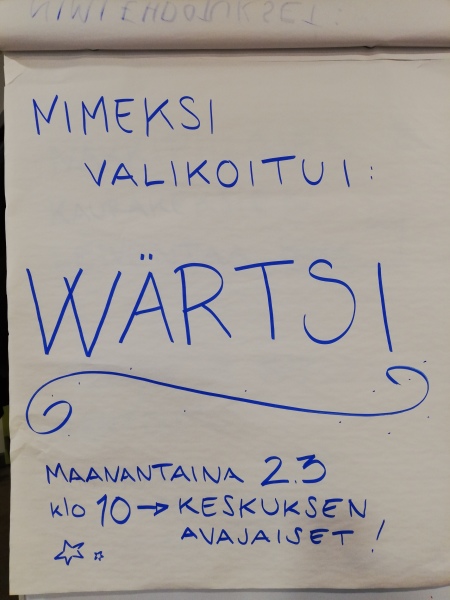 NIMIEHDOTUKSET:
NIMEKSI
VALIKOITUI:
WÄRTSI
MAANANTAINA 2.3
klo 10 → KESKUKSEN
AVAJAISET!